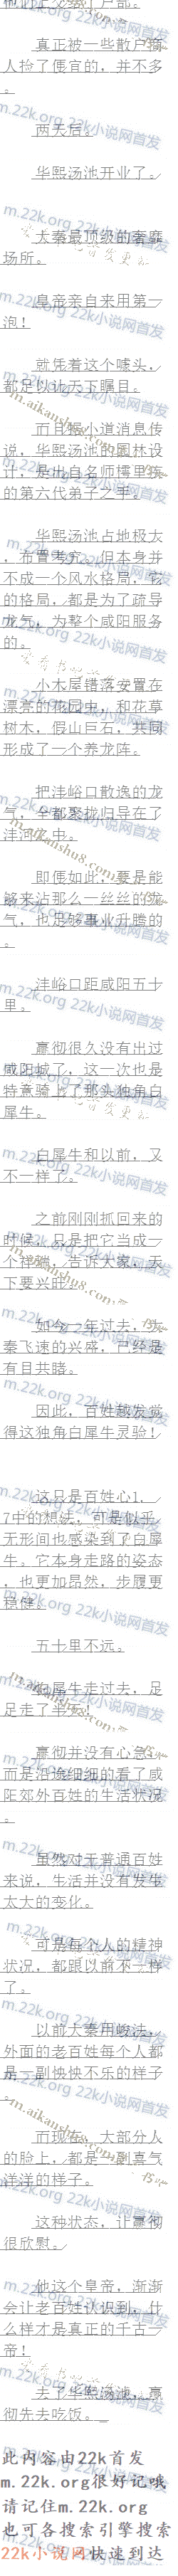 真正被一些散户商
人捡了便宜的，并不多
。
两天后。
华熙汤池开业了。
大秦最顶级的奢靡
场所。
皇帝亲自来用第一
泡！
就凭着这个噱头，
都足以让天下瞩目。
而且据小道消息传
说，华熙汤池的园林设
计，是出自名师樗里疾
的第六代弟子之手。
华熙汤池占地极大
，布置考究，但本身并
不成一个风水格局，它
的格局，都是为了疏导
龙气，为整个咸阳服务
的。
小木屋错落安置在
漂亮的花园中，和花草
树木，假山巨石，共同
形成了一个养龙阵。
把沣峪口散逸的龙
气，全都聚拢归导在了
沣河之中。
即便如此，要是能
够来沾那么一丝丝的龙
气，也足够事业升腾的
。
沣峪口距咸阳五十
里。
嬴彻很久没有出过
咸阳城了，这一次也是
特意骑上了那头独角白
犀牛。
白犀牛和以前，又
不一样了。
之前刚刚抓回来的
时候，只是把它当成一
个祥瑞，告诉大家，天
下要兴旺。
如今一年过去，大
秦飞速的兴盛，已经是
有目共睹。
因此，百姓越发觉
得这独角白犀牛灵验！
这只是百姓心1，
7中的想法，可是似乎
无形间也感染到了白犀
牛。它本身走路的姿态
，也更加昂然，步履更
稳健。
五十里不远。
白犀牛走过去，足
足走了半天！
嬴彻并没有心急，
而是沿途细细的看了咸
阳郊外百姓的生活状况
。
虽然对于普通百姓
来说，生活并没有发生
太大的变化。
可是每个人的精神
状况，都跟以前不一样
了。
以前大秦用峻法，
外面的老百姓每个人都
是一副怏怏不乐的样子
。
而现在，大部分人
的脸上，都是一副喜气
洋洋的样子。
这种状态，让嬴彻
很欣慰。
他这个皇帝，渐渐
会让老百姓认识到，什
么样才是真正的千古一
帝！
去了华熙汤池，嬴
彻先去吃饭。
此内容由22k首发
m.22k.org很好记哦
请记住m.22k.org
也可各搜索引擎搜索
22k小说网快速到达